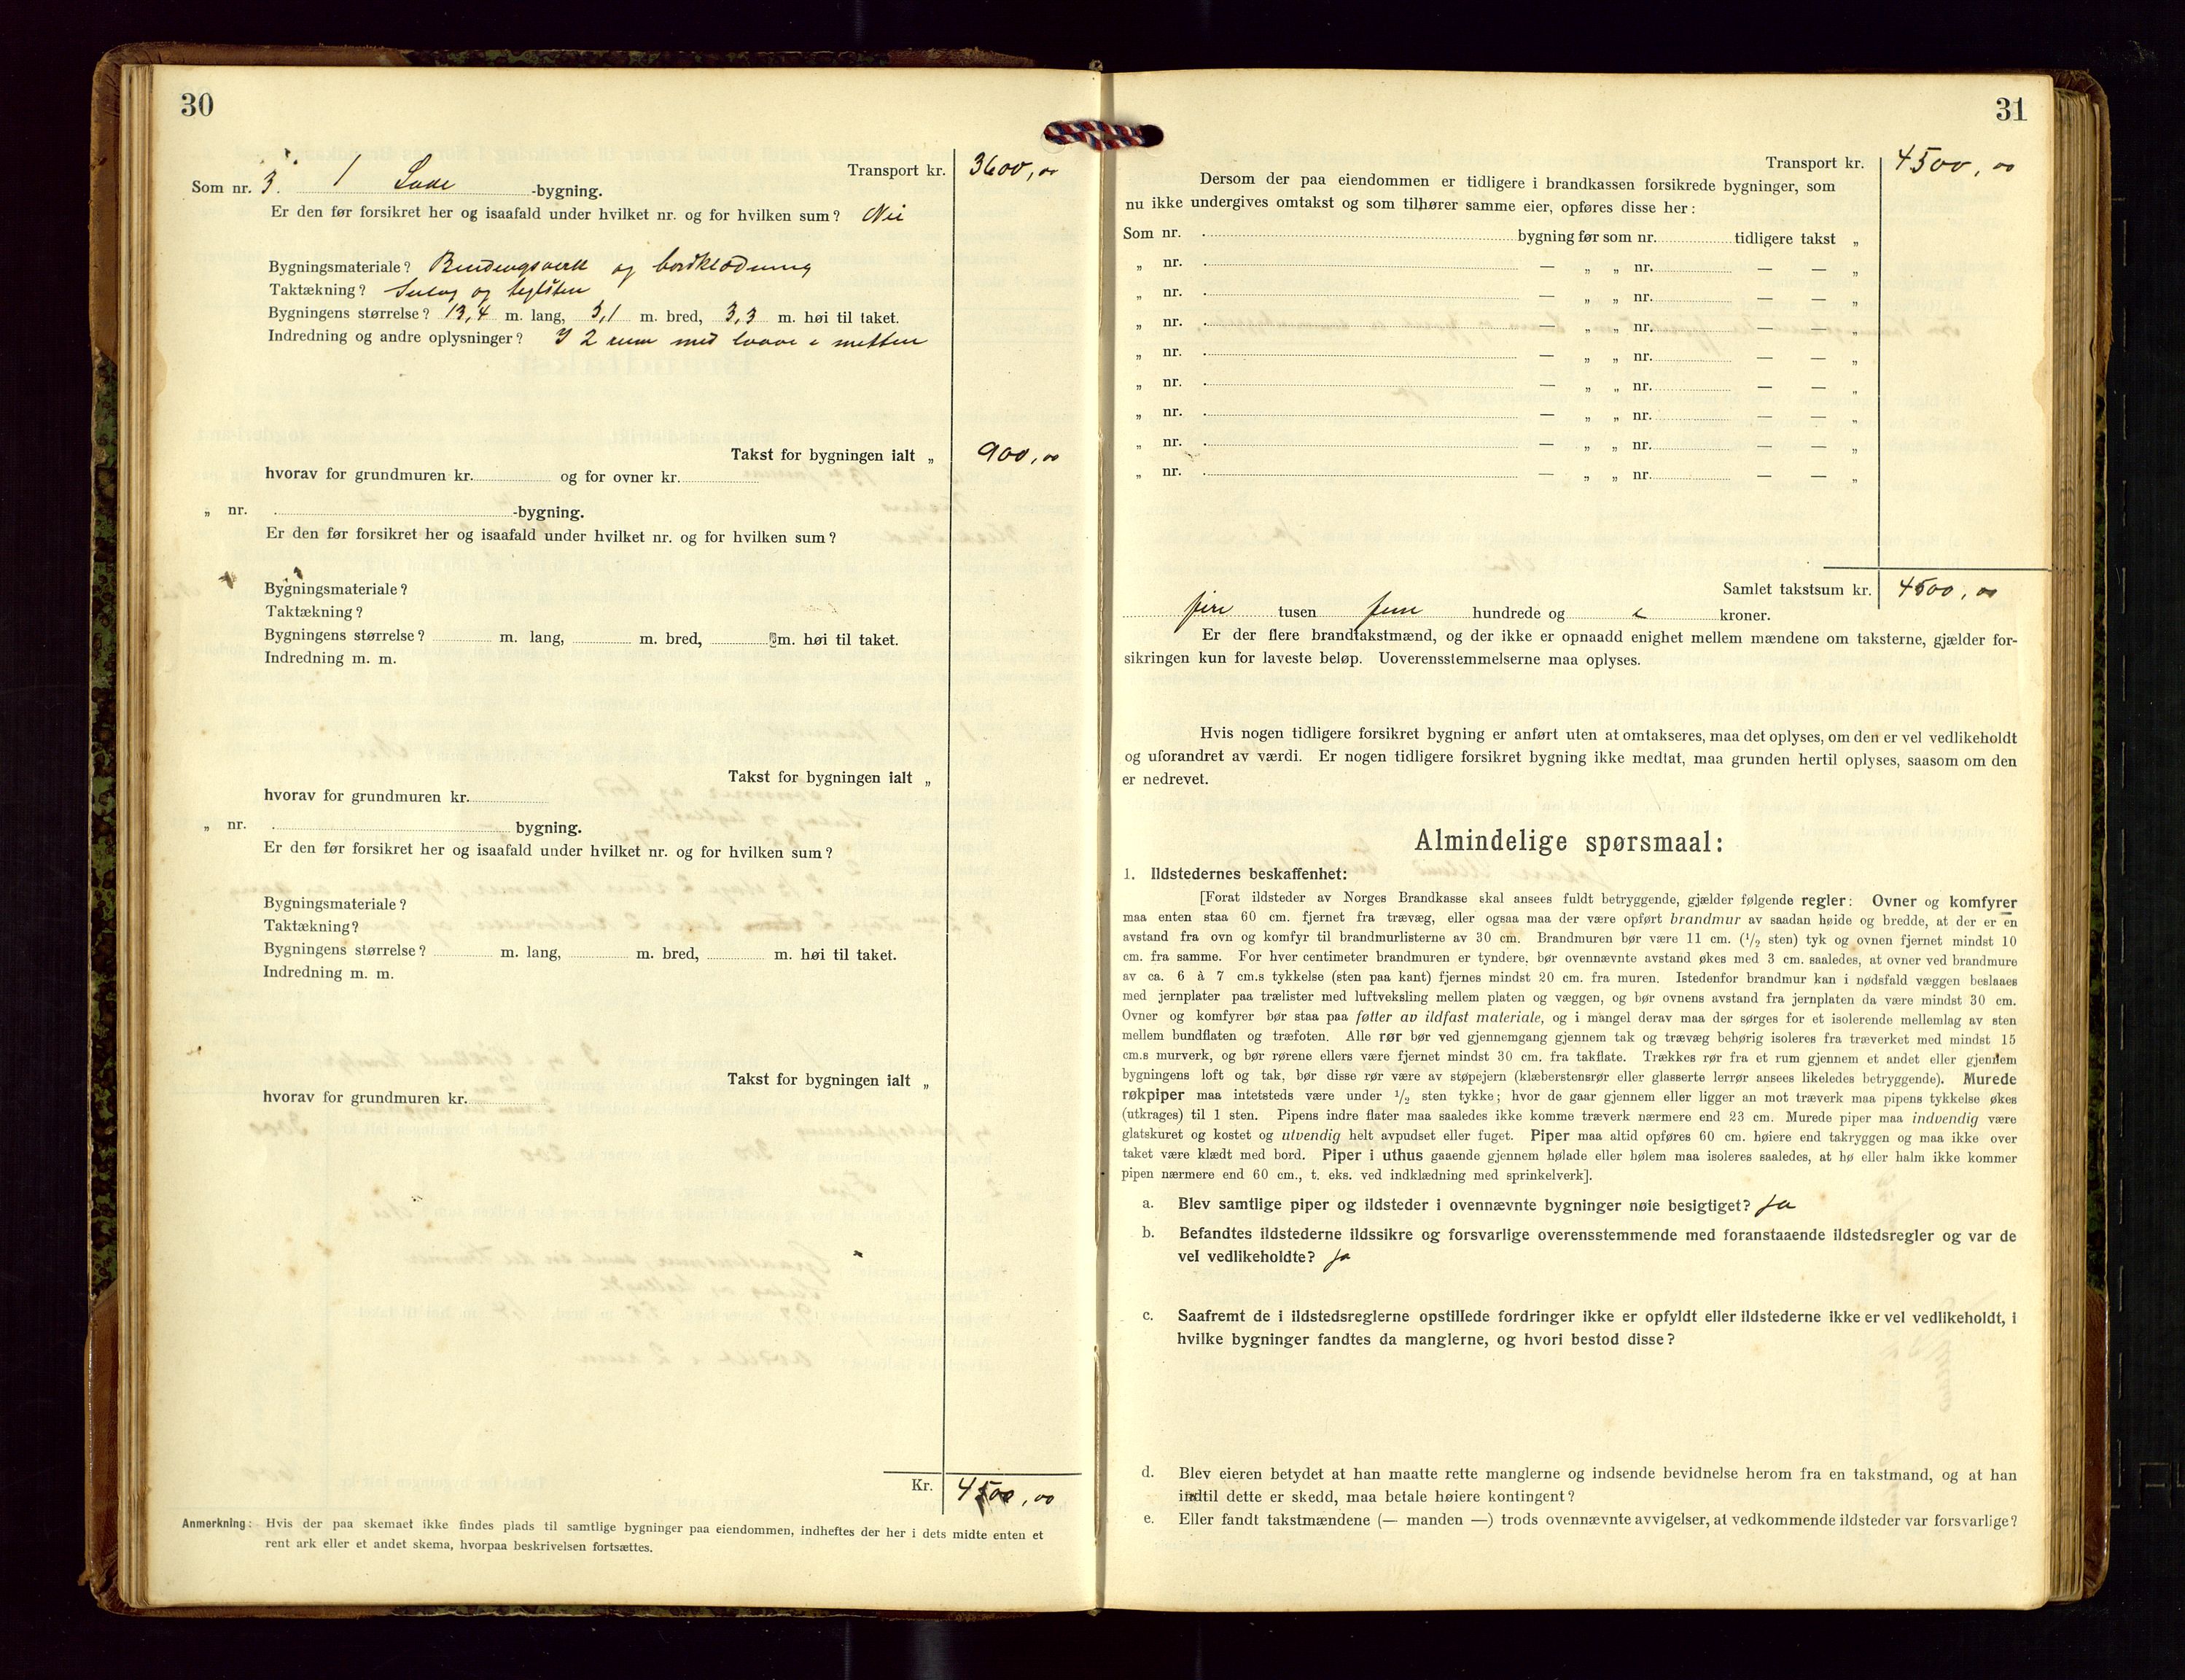 30
Transport kr. 3600,00
Som nr. 3. 1 Lade -bygning.
Er den før forsikret her og isaafald under hvilket nr. og for hvilken sum? Nei
Bygningsmateriale? Bindingsverk og bordklædning
Taktækning? Sutag og teglsten
Bygningens størrelse? 13,4 m. lang, 5,1 m. bred, 3,3 m. høi til taket.
Indredning og andre oplysninger? I 2 rum med lovve i mitten
Takst for bygningen ialt „ 900,00
hvorav for grundmuren kr. og for ovner kr.
„ nr. -bygning.
Er den før forsikret her og isaafald under hvilket nr. og for hvilken sum?
Bygningsmateriale?
Taktækning?
Bygningens størrelse? m. lang, m. bred, m. høi til taket.
Indredning m. m.
Takst for bygningen ialt „
hvorav for grundmuren kr.
„ nr. bygning.
Er den før forsikret her og isaafald under hvilket nr. og for hvilken sum?
Bygningsmateriale?
Taktækning?
Bygningens størrelse? m. lang, m. bred, m. høi til taket.
Indredning m. m.
Takst for bygningen ialt „
hvorav for grundmuren kr.
Kr. 4500,00
Anmerkning: Hvis der paa skemaet ikke findes plads til samtlige bygninger paa eiendommen, indheftes der her i dets midte enten et
rent ark eller et andet skema, hvorpaa beskrivelsen fortsættes.
31
Transport kr. 4500,00
Dersom der paa eiendommen er tidligere i brandkassen forsikrede bygninger, som
nu ikke undergives omtakst og som tilhører samme eier, opføres disse her:
Som nr. bygning før som nr. tidligere takst „
„ nr. — „ „ nr. — — „
„ nr. — „ „ nr. — — „
„ nr. — „ „ nr. — — „
„ nr. — „ „ nr. — — „
„ nr. — „ „ nr. — — „
„ nr. — „ „ nr. — — „
„ nr. — „ „ nr. — — „
„ nr. — „ „ nr. — — „
Samlet takstsum kr. 4500,00
fire tusen fem hundrede og kroner.
Er der flere brandtakstmænd, og der ikke er opnaadd enighet mellem mændene om taksterne, gjælder for-
sikringen kun for laveste beløp. Uoverensstemmelserne maa oplyses.
Hvis nogen tidligere forsikret bygning er anført uten at omtakseres, maa det oplyses, om den er vel vedlikeholdt
og uforandret av værdi. Er nogen tidligere forsikret bygning ikke medtat, maa grunden hertil oplyses, saasom om den
er nedrevet.
Almindelige spørsmaal:
1. Ildstedernes beskaffenhet:
[Forat ildsteder av Norges Brandkasse skal ansees fuldt betryggende, gjælder følgende regler: Ovner og komfyrer
maa enten staa 60 cm. fjernet fra trævæg, eller ogsaa maa der være opført brandmur av saadan høide og bredde, at der er en
avstand fra ovn og komfyr til brandmurlisterne av 30 cm. Brandmuren bør være 11 cm. (1/2 sten) tyk og ovnen fjernet mindst 10
cm. fra samme. For hver centimeter brandmuren er tyndere, bør ovennævnte avstand økes med 3 cm. saaledes, at ovner ved brandmure
av ca. 6 à 7 cm.s tykkelse (sten paa kant) fjernes mindst 20 cm. fra muren. Istedenfor brandmur kan i nødsfald væggen beslaaes
med jernplater paa trælister med luftveksling mellem platen og væggen, og bør ovnens avstand fra jernplaten da være mindst 30 cm.
Ovner og komfyrer bør staa paa føtter av ildfast materiale, og i mangel derav maa der sørges for et isolerende mellemlag av sten
mellem bundflaten og træfoten. Alle rør bør ved gjennemgang gjennem tak og trævæg behørig isoleres fra træverket med mindst 15
cm.s murverk, og bør rørene ellers være fjernet mindst 30 cm. fra takflate. Trækkes rør fra et rum gjennem et andet eller gjennem
bygningens loft og tak, bør disse rør være av støpejern (klæberstensrør eller glasserte lerrør ansees likeledes betryggende). Murede
røkpiper maa intetsteds være under 1/2 sten tykke; hvor de gaar gjennem eller ligger an mot træverk maa pipens tykkelse økes
(utkrages) til 1 sten. Pipens indre flater maa saaledes ikke komme træverk nærmere end 23 cm. Murede piper maa indvendig være
glatskuret og kostet og utvendig helt avpudset eller fuget. Piper maa altid opføres 60 cm. høiere end takryggen og maa ikke over
taket være klædt med bord. Piper i uthus gaaende gjennem hølade eller hølem maa isoleres saaledes, at hø eller halm ikke kommer
pipen nærmere end 60 cm., t. eks. ved indklædning med sprinkelverk].
a. Blev samtlige piper og ildsteder i ovennævnte bygninger nøie besigtiget? Ja
b. Befandtes ildstederne ildssikre og forsvarlige overensstemmende med foranstaaende ildstedsregler og var de
vel vedlikeholdte? Ja
c. Saafremt de i ildstedsreglerne opstillede fordringer ikke er opfyldt eller ildstederne ikke er vel vedlikeholdt, i
hvilke bygninger fandtes da manglerne, og hvori bestod disse?
d. Blev eieren betydet at han maatte rette manglerne og indsende bevidnelse herom fra en takstmand, og at han
indtil dette er skedd, maa betale høiere kontingent?
e. Eller fandt takstmændene (— manden —) trods ovennævnte avvigelser, at vedkommende ildsteder var forsvarlige?